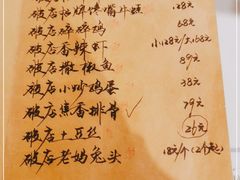 破店招牌馋嘴牛蛙 138元
破店碎碎鸡 68元
破店香辣虾 小128/大168元
破店撒椒鱼 89元
破店小炒鸡蛋 38元
破店焦香排骨✓ 79元
破店土豆丝 26元
破店老妈兔头 18元/个(2个起)